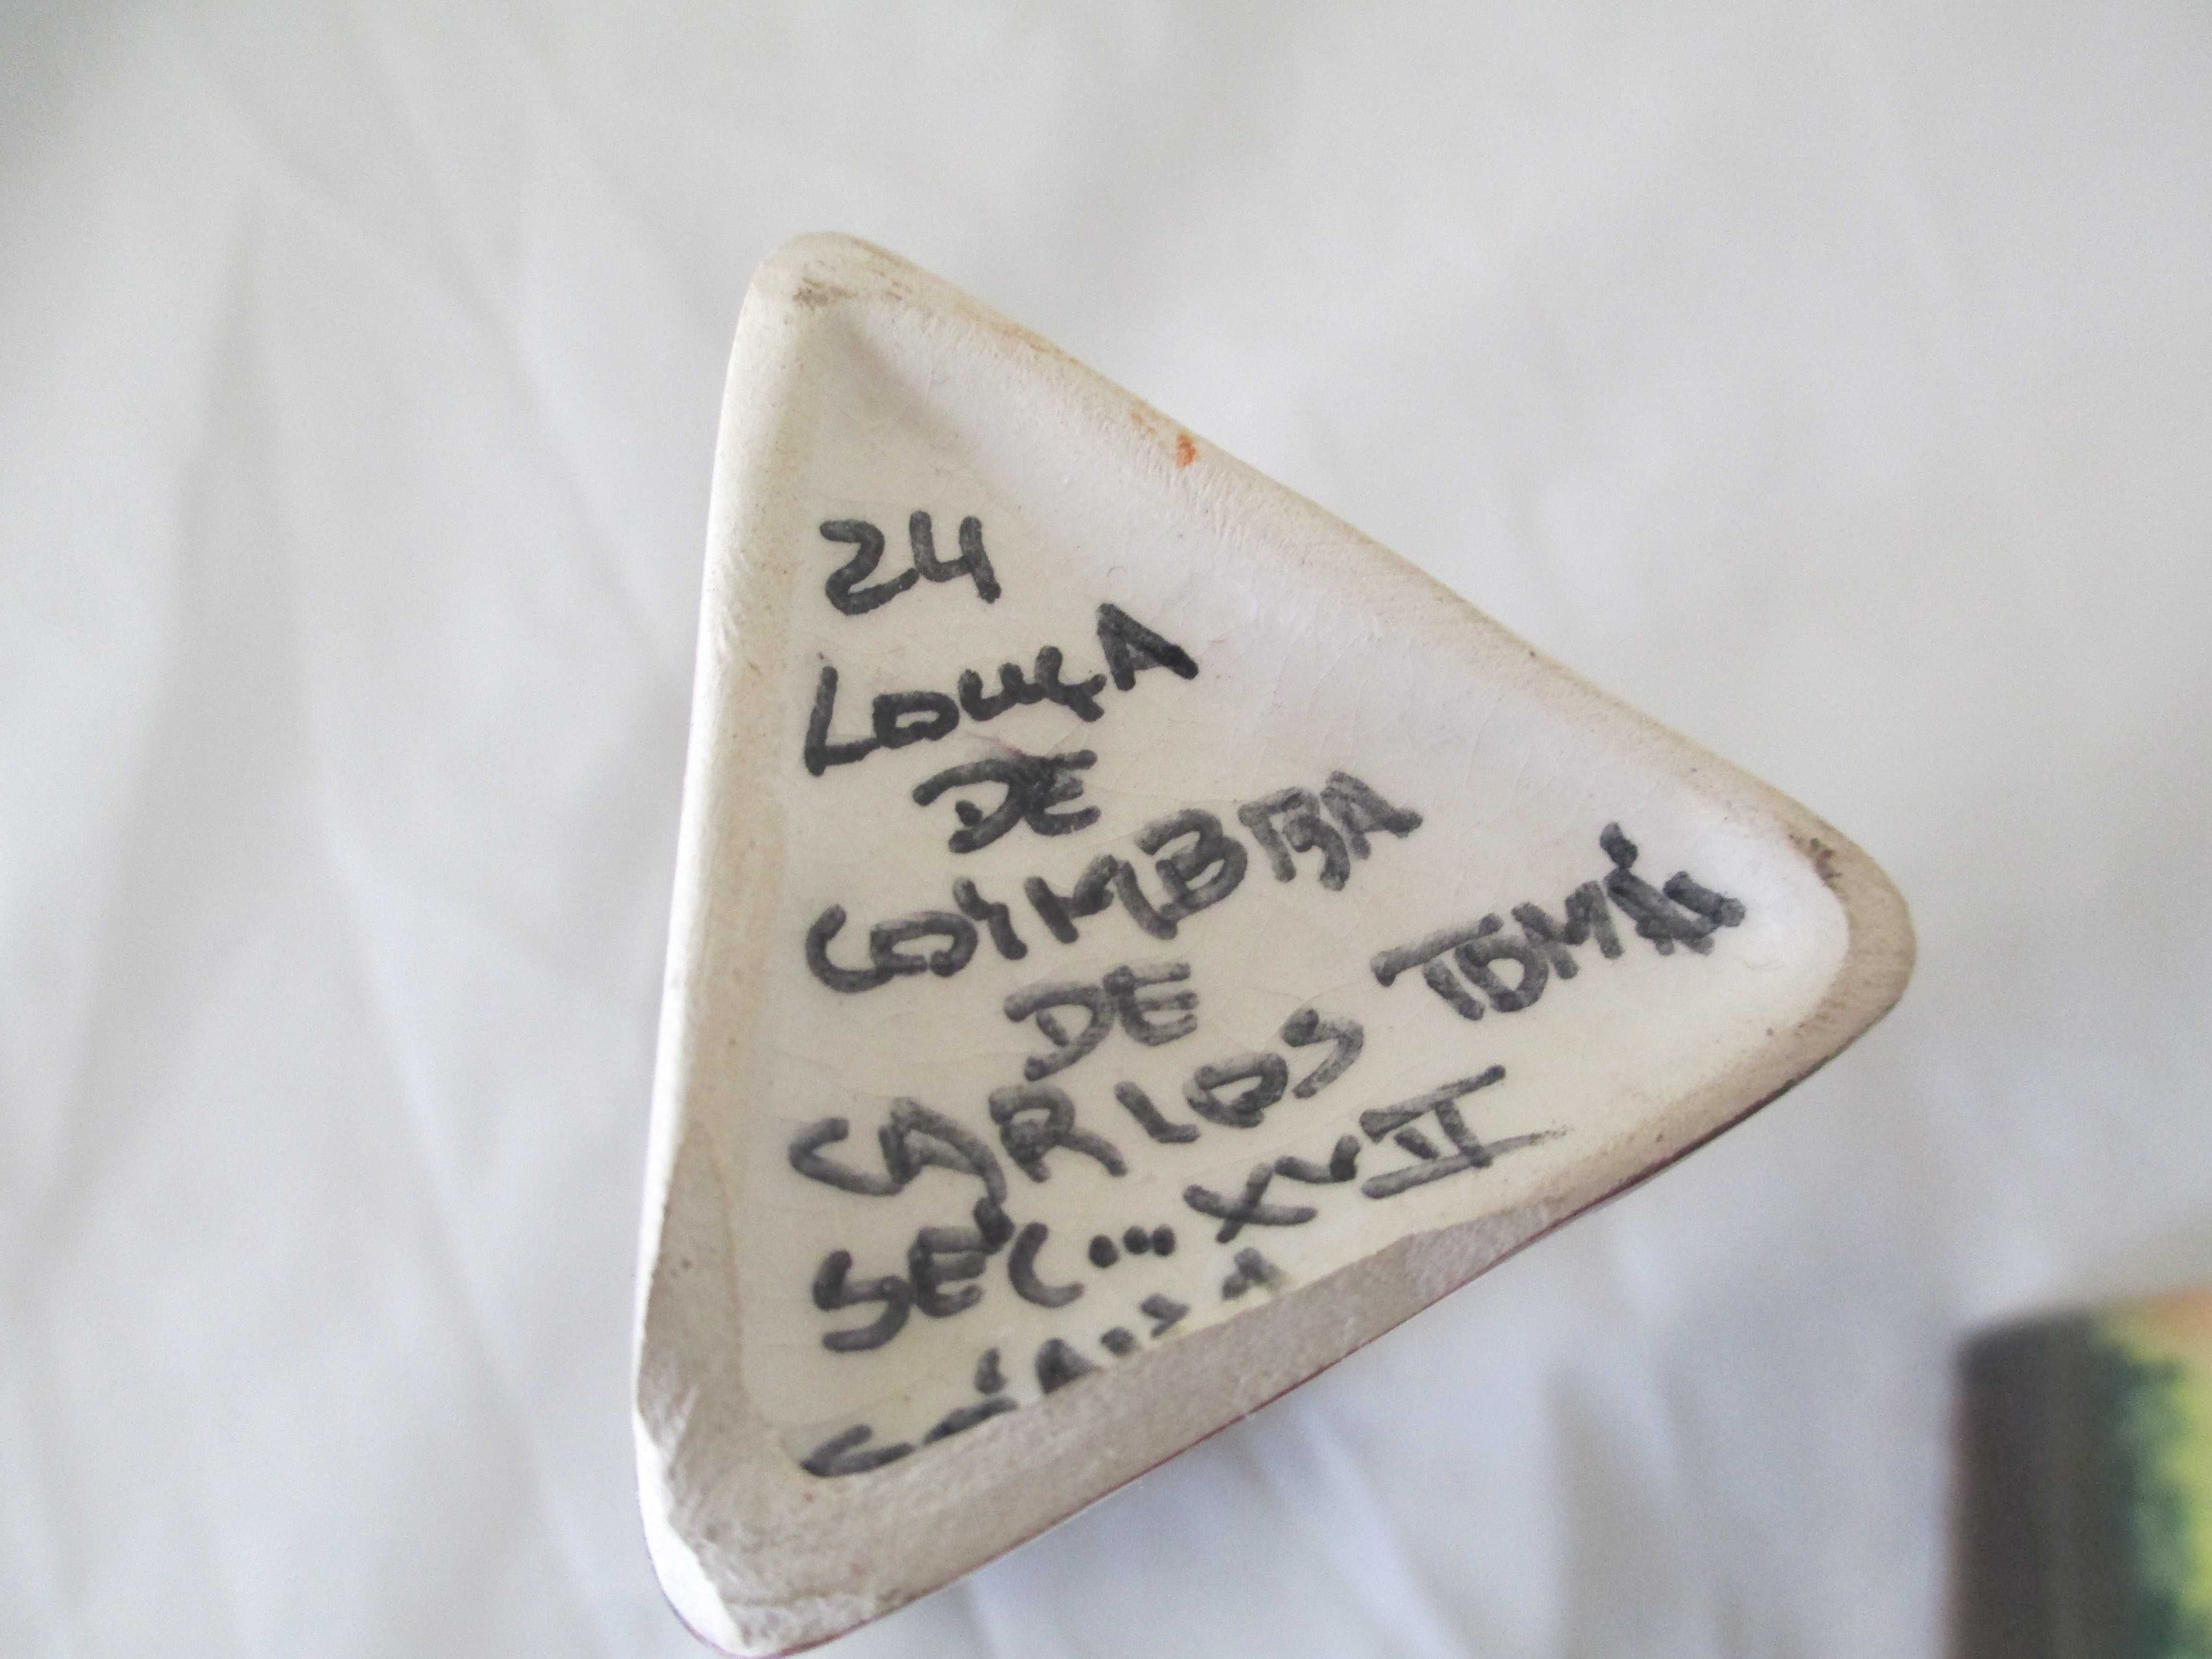 24
LOUÇA
DE
COIMBRA
DE
CARLOS TOMÁS
SEC... XVII